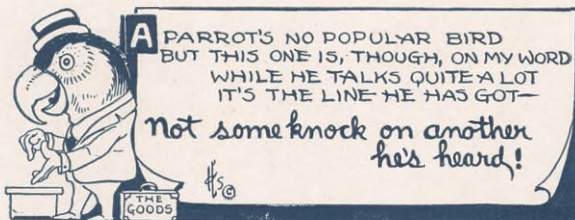 A PARROT'S NO POPULAR BIRD
BUT THIS ONE IS, THOUGH, ON MY WORD
WHILE HE TALKS QUITE A LOT
IT'S THE LINE HE HAS GOT—
Not some knock on another
he's heard!
THE
GOODS